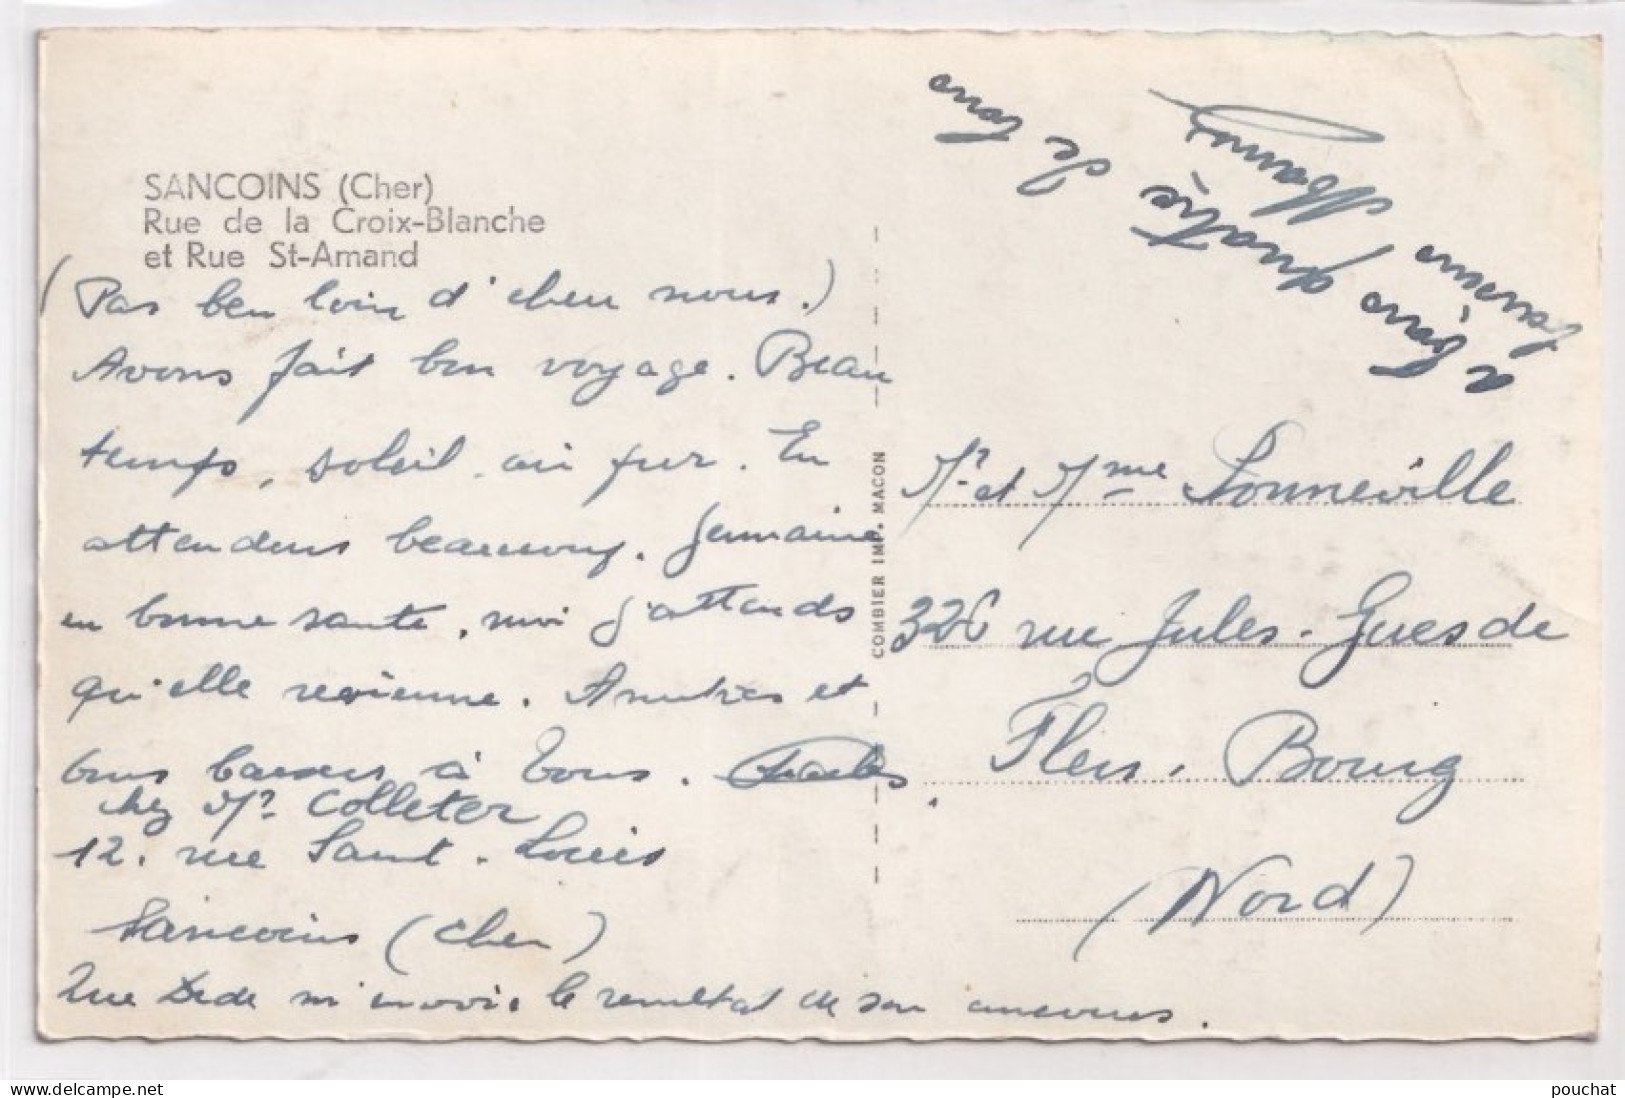 SANCOINS (Cher)
Rue de la Croix-Blanche
et Rue St-Amand
(Pas ben loin d'cheu nous.)
Avons fait bon voyage. Beau
temps, soleil, air pur. En
attendons beaucoup. Germaine
en bonne santé, moi j'attends
qu'elle revienne. Amitiés et
bons baisers à tous.
chez Mr Colleter
12. rue Saint-Louis
Sancoins (Cher)
Que Dédé m'envoie le résultat de son concours.
COMBIER IMP. MACON
à tous quatre de tous
Maman
Mr et Mme Sonneville
326 rue Jules-Guesde
Flers-Bourg
(Nord)
pouchat
www.delcampe.net